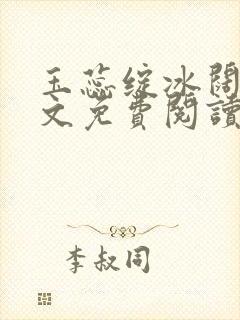 玉蕊绽冰阔
文免費閱讀
李叔同